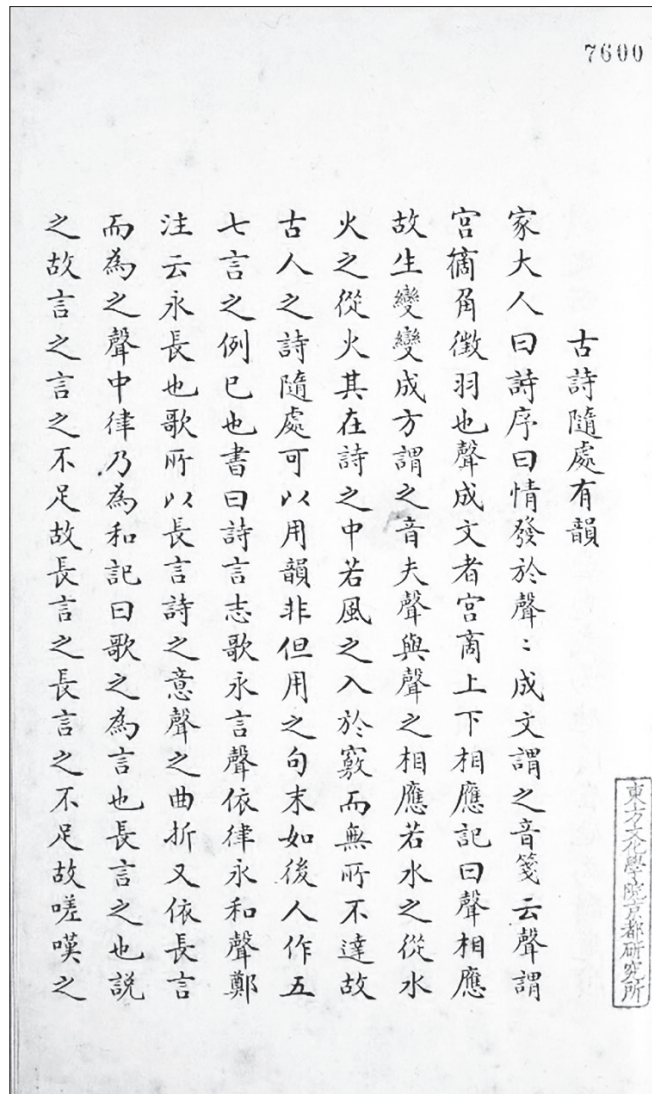 7600
古詩隨處有韻
家大人曰詩序曰情發於聲〻成文謂之音箋云聲謂
宮商角徵羽也聲成文者宮商上下相應記曰聲相應
故生變變成方謂之音夫聲與聲之相應若水之從水
火之從火其在詩之中若風之入於竅而無所不達故
古人之詩隨處可以用韻非但用之句末如後人作五
七言之例已也書曰詩言志歌永言聲依律永和聲鄭
注云永長也歌所以長言詩之意聲之曲折又依長言
而為之聲中律乃為和記曰歌之為言也長言之也說
之故言之言之不足故長言之長言之不足故嗟嘆之
東方文化學院京都研究所